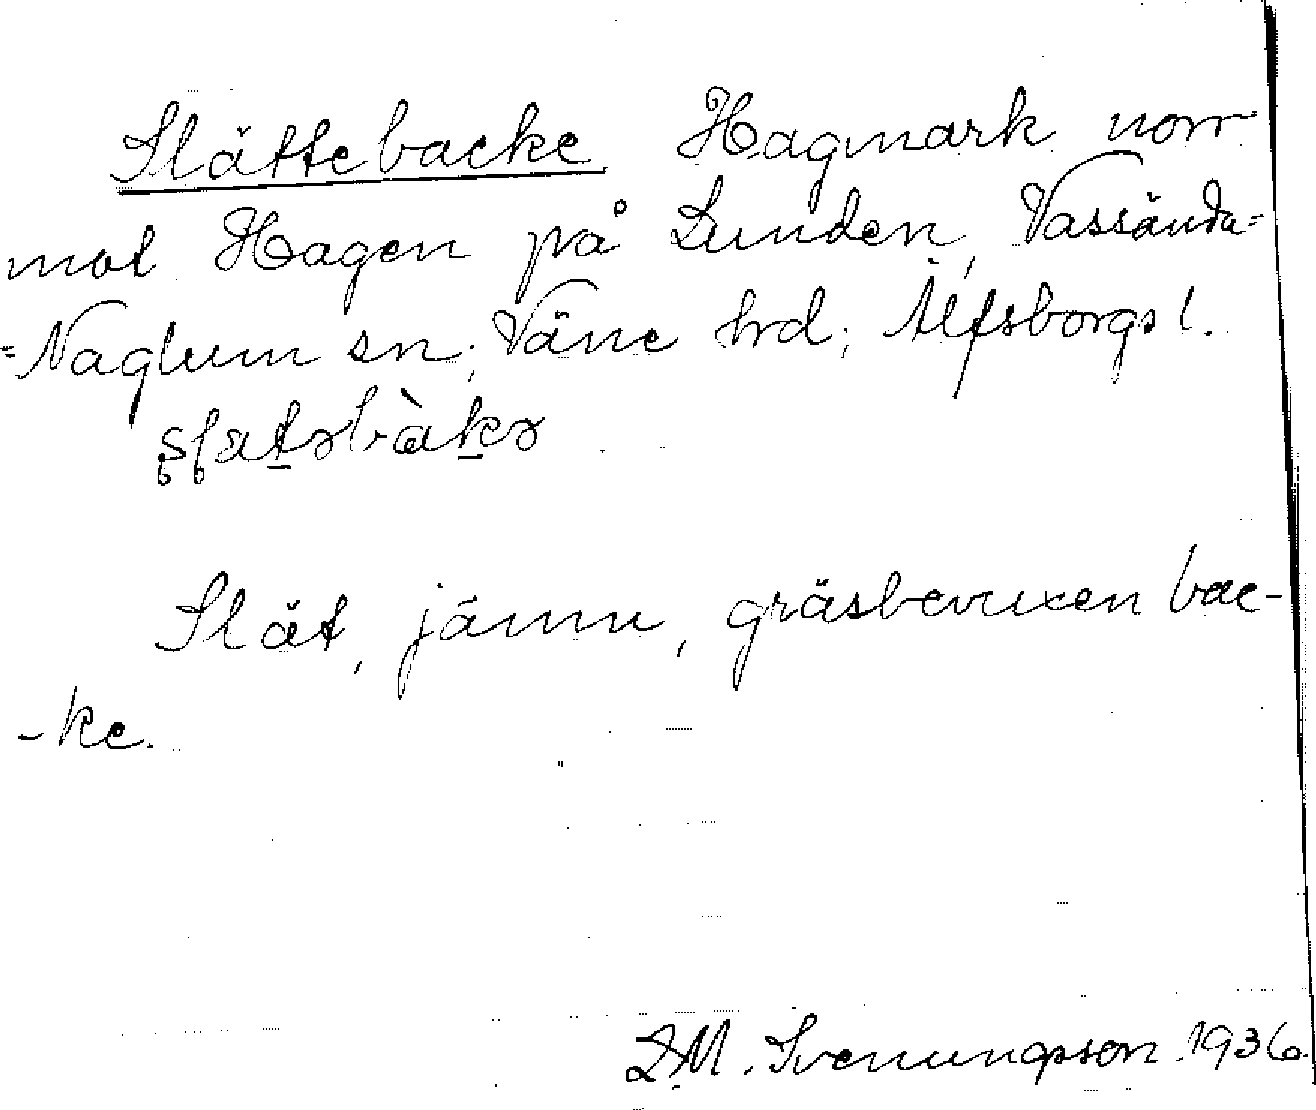 Slättebacke. Hagmark norr
mot Hagen på Lunden, Vassända=
=Naglum sn; Väne hrd; Älfsborgs l.
Slät, jämn, gräsbevuxen bac-
-ke.
D.M. Svenungsson 1936.